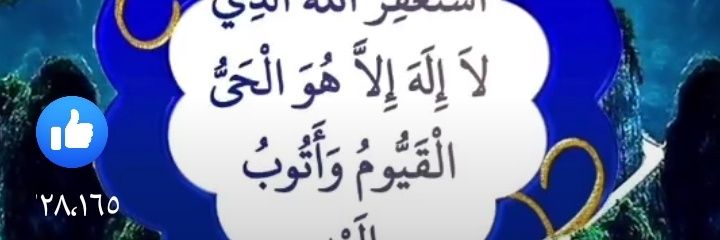 أَسْتَغْفِرُ اللهَ الَّذِي
لاَ إِلَهَ إِلاَّ هُوَ الْحَيُّ
الْقَيُّومُ وَأَتُوبُ
إِلَيْهِ
٢٨،١٦٥